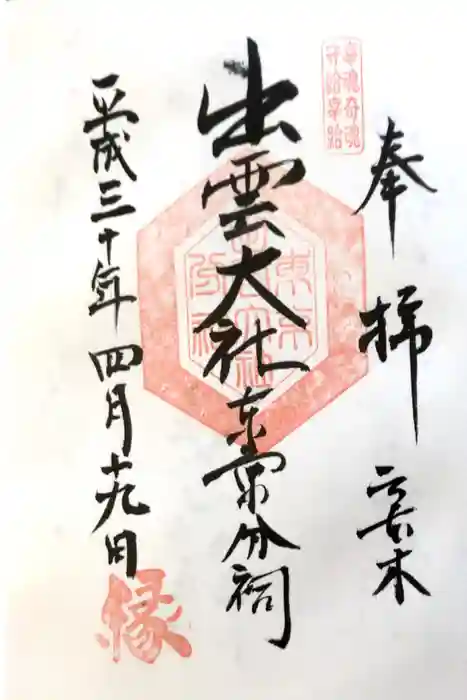 奉拝
六本木
出雲大社
東京分祠
平成三十年四月十九日
幸魂奇魂
守給幸給
縁